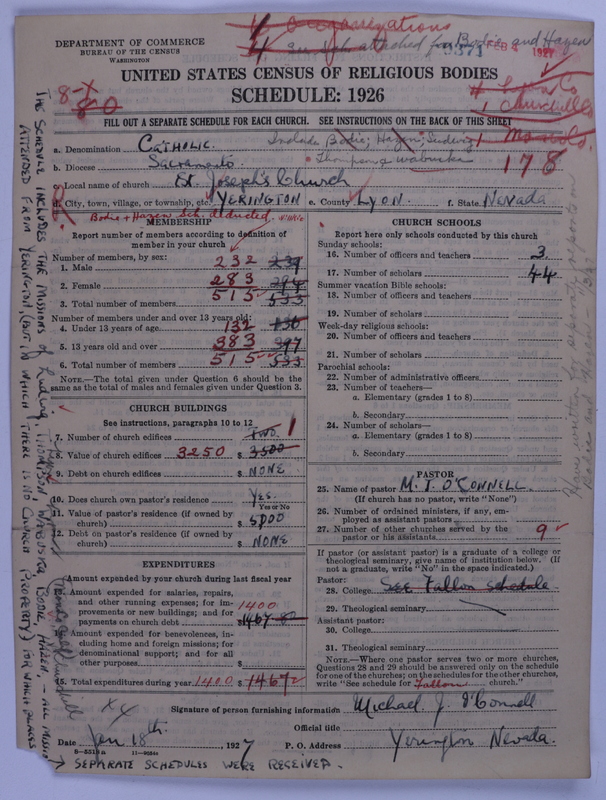 4 Organizations
4 attached for Bodie and Hazen
DEPARTMENT OF COMMERCE
BUREAU OF THE CENSUS
WASHINGTON
FEB 4 1927
UNITED STATES CENSUS OF RELIGIOUS BODIES
SCHEDULE: 1926
8-X
80
1 Churchill
1 178
FILL OUT A SEPARATE SCHEDULE FOR EACH CHURCH. SEE INSTRUCTIONS ON THE BACK OF THIS SHEET
a. Denomination CATHOLIC. Includes Bodie; Hazen; Ludwig
b. Diocese Sacramento. Thompson Wabuska
c. Local name of church St. Joseph's Church
d. City, town, village, or township, etc. YERINGTON e. County LYON. f. State NEVADA
Bodie + Hazen Sch. deducted.
MEMBERSHIP
Report number of members according to definition of
member in your church
Number of members, by sex:
1. Male 232 239
2. Female 283 294
3. Total number of members 515 533
Number of members under and over 13 years old:
4. Under 13 years of age 132 136
5. 13 years old and over 383 397
6. Total number of members 515 533
NOTE.—The total given under Question 6 should be the
same as the total of males and females given under Question 3.
CHURCH BUILDINGS
See instructions, paragraphs 10 to 12
7. Number of church edifices Two. 1
8. Value of church edifices 3250 $ 3500
9. Debt on church edifices $ NONE
10. Does church own pastor's residence Yes.
Yes or No
11. Value of pastor's residence (if owned by
church) $ 5000
12. Debt on pastor's residence (if owned by
church) $ NONE
EXPENDITURES
Amount expended by your church during last fiscal year
13. Amount expended for salaries, repairs,
and other running expenses; for im-
provements or new buildings; and for
payments on church debt 1400 $ 1467
14. Amount expended for benevolences, in-
cluding home and foreign missions; for
denominational support; and for all
other purposes $
15. Total expenditures during year 1400 $ 1467
CHURCH SCHOOLS
Report here only schools conducted by this church
Sunday schools:
16. Number of officers and teachers 3.
17. Number of scholars 44
Summer vacation Bible schools:
18. Number of officers and teachers
19. Number of scholars
Week-day religious schools:
20. Number of officers and teachers
21. Number of scholars
Parochial schools:
22. Number of administrative officers
23. Number of teachers—
a. Elementary (grades 1 to 8)
b. Secondary
24. Number of scholars—
a. Elementary (grades 1 to 8)
b. Secondary
PASTOR
25. Name of pastor M. J. O'CONNELL
(If church has no pastor, write "None")
26. Number of ordained ministers, if any, em-
ployed as assistant pastors
27. Number of other churches served by the
pastor or his assistants 9
If pastor (or assistant pastor) is a graduate of a college or
theological seminary, give name of institution below. (If
not a graduate, write "No" in the space indicated.)
Pastor:
28. College SEE Fallon schedule
29. Theological seminary
Assistant pastor:
30. College
31. Theological seminary
NOTE.—Where one pastor serves two or more churches,
Questions 28 and 29 should be answered only on the schedule
for one of the churches; on the schedules for the other churches,
write "See schedule for Fallon church."
Signature of person furnishing information Michael J. O'Connell
Official title
Date Jan 18th, 1927 P. O. Address Yerington Nevada.
11—9024
THE SCHEDULE INCLUDES THE MISSIONS of Ludwig, THOMPSON, WABUSKA, BODIE, HAZEN, - ALL MISSIONS
ATTENDED FROM YERINGTON, (BUT IN WHICH THERE IS NO CHURCH PROPERTY) FOR WHICH PLACES
SEPARATE SCHEDULES WERE RECEIVED.